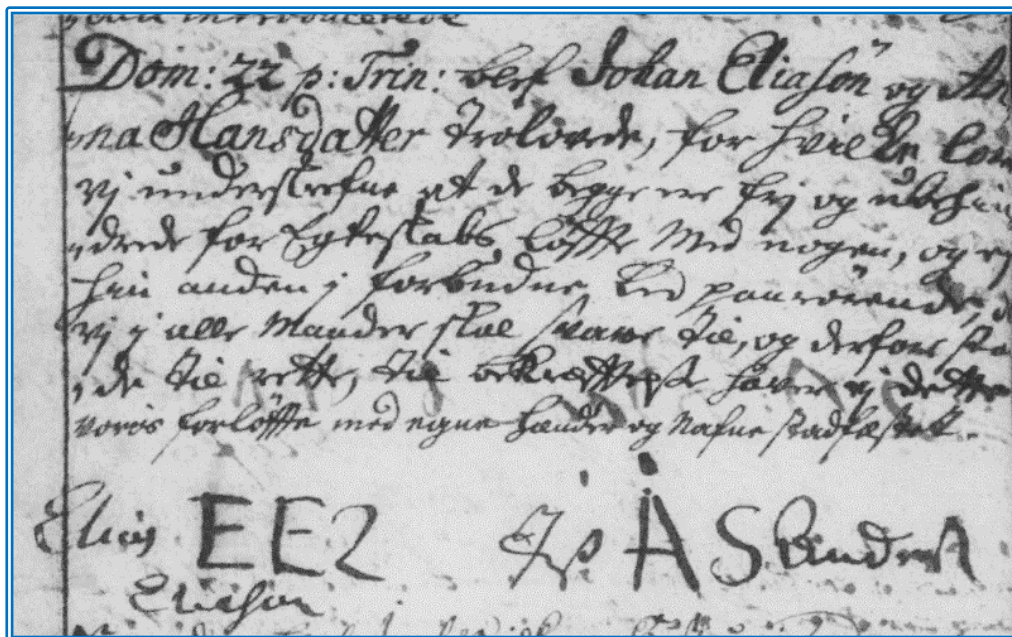 Dom: 22 p: Trin: blef Johan Eliasön og An
na Hansdatter trolovede, for hvilke
vj underskrefne at de begge ere frj og ubehin
drede for Egteskabs löffte med nogen, og ej
hin anden j forbudne Led paarörende,
vj j alle Maader skal svare til, og derfore sta
de til rette, til bekræfftelse haver vj dette
voris forlöffte med egne hænder og Nafne stadfæstet.
Elias EE2 A S
Eliason